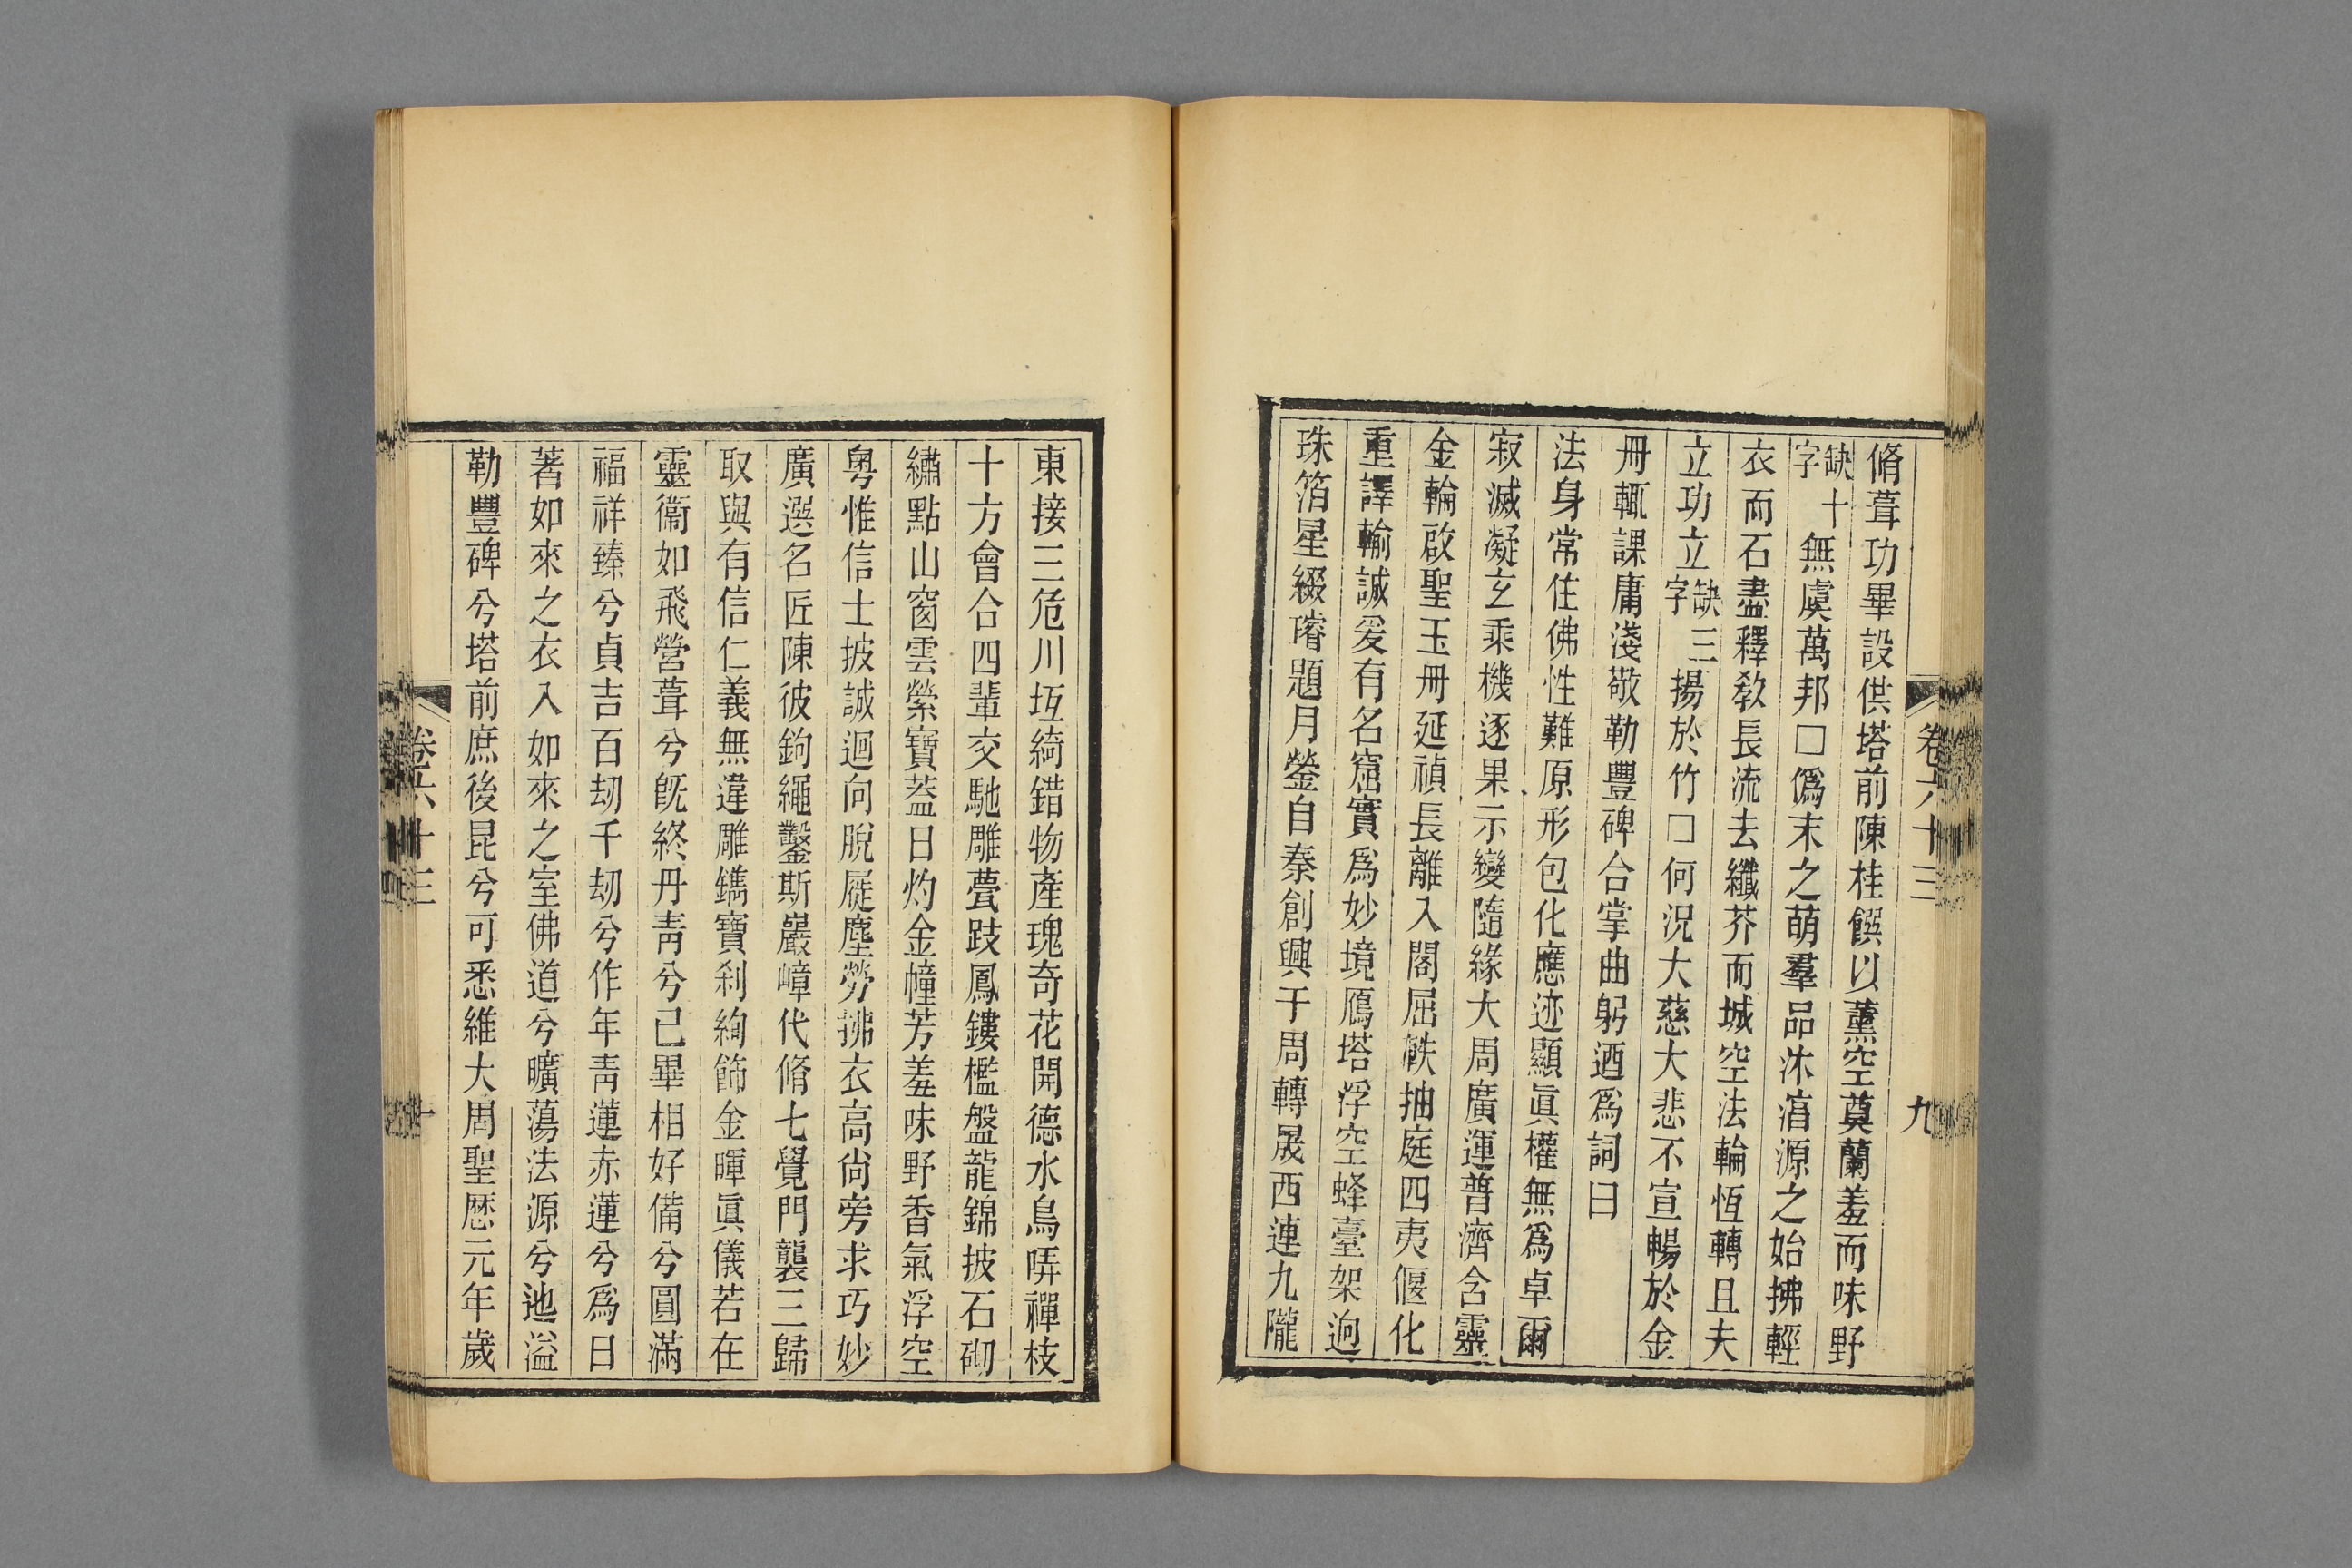 脩葺功畢設供塔前陳桂饌以薰空奠蘭羞而味野
缺十字無虞萬邦□僞末之萌羣品沐湻源之始拂輕
衣而石盡釋教長流去纖芥而城空法輪恆轉且夫
立功立缺三字揚於竹□何況大慈大悲不宣暢於金
冊輒課庸淺敬勒豐碑合掌曲躬迺爲詞曰
法身常住佛性難原形包化應迹顯眞權無爲卓爾
寂滅凝玄乘機逐果示變隨緣大周廣運普濟含靈
金輪啟聖玉冊延禎長離入閣屈軼抽庭四夷偃化
重譯輸誠爰有名窟實爲妙境鴈塔浮空蜂臺架迥
珠箔星綴璿題月鎣自秦創興于周轉晟西連九隴
卷六十三
九
東接三危川㘴綺錯物產瑰奇花開德水鳥哢禪枝
十方會合四輩交馳雕甍跂鳳鏤檻盤龍錦披石砌
繡點山窗雲縈寶蓋日灼金幢芳羞味野香氣浮空
粤惟信士披誠迴向脫屣塵勞拂衣高尚旁求巧妙
廣選名匠陳彼鉤繩鑿斯巖嶂代脩七覺門襲三歸
取與有信仁義無違雕鐫寶刹絢飾金暉眞儀若在
靈衞如飛營葺兮旣終丹靑兮已畢相好備兮圓滿
福祥臻兮貞吉百刼千刼兮作年靑蓮赤蓮兮爲日
著如來之衣入如來之室佛道兮曠蕩法源兮滗溢
勒豐碑兮塔前庶後昆兮可悉維大周聖歷元年歲
卷六十三
十